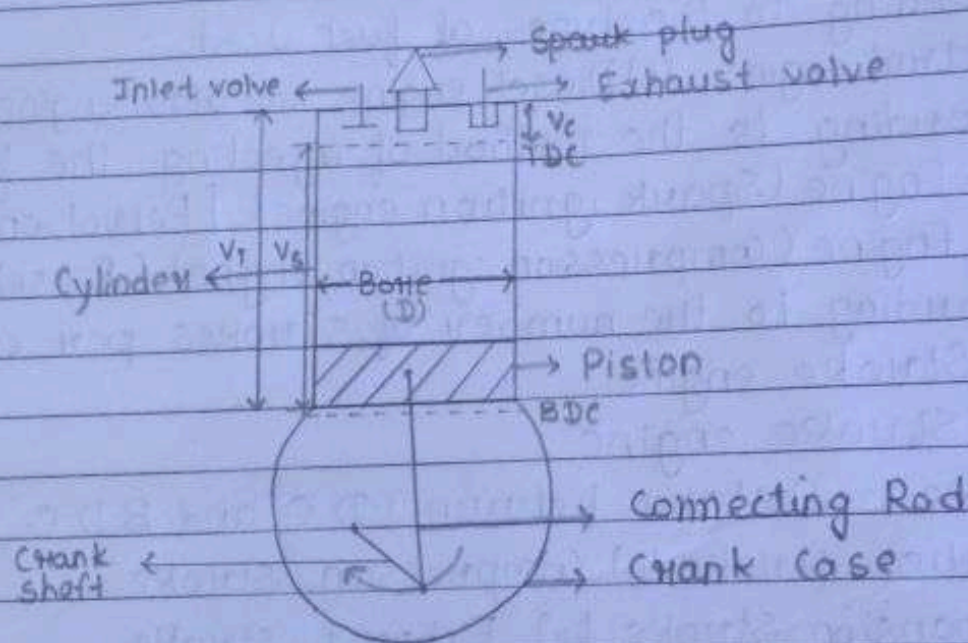 Spark plug
Inlet valve
Exhaust valve
Vc
TDC
VT
Vs
Cylinder
Bore
(D)
Piston
BDC
Connecting Rod
Crank
shaft
Crank Case